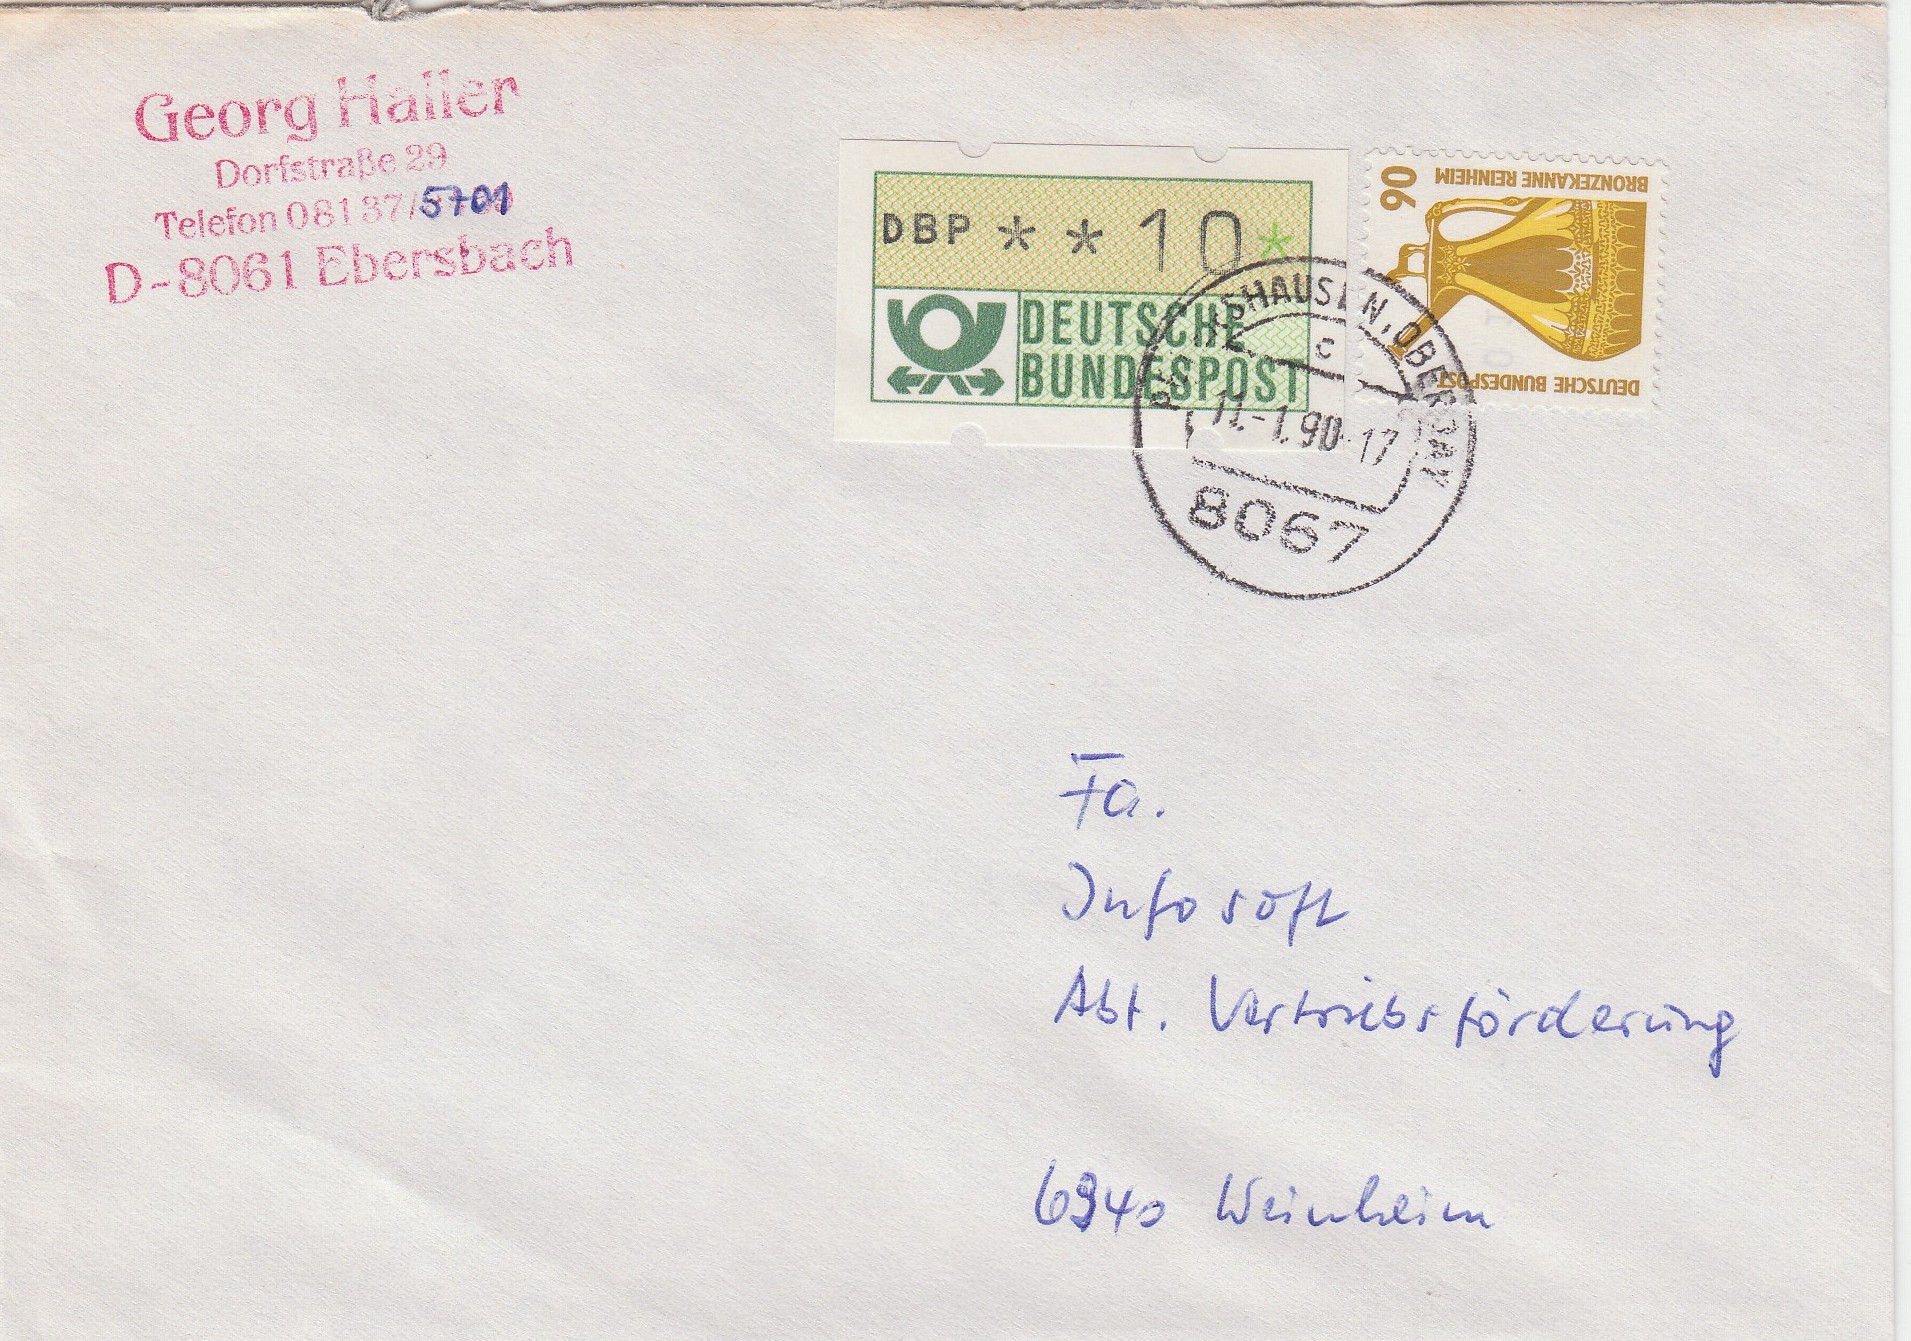 Georg Haller
Dorfstraße 29
Telefon 08137/5701
D-8061 Ebersbach
DBP * * 10 *
DEUTSCHE
BUNDESPOST
90
BRONZEKANNE REINHEIM
DEUTSCHE BUNDESPOST
OBERBAY
c
11.-1.90-17
8067
Fa.
Infosoft
Abt. Vertriebsförderung
6940 Weinheim